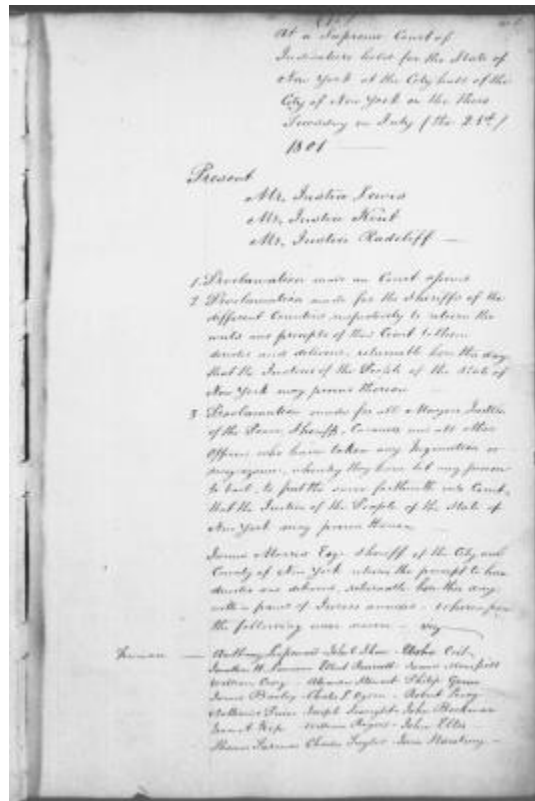 At a Supreme Court of
Judicature held for the State of
New York at the City hall of the
City of New York on the third
Tuesday in July (the 21st)
1801
Present
Mr. Justice Lewis
Mr. Justice Kent
Mr. Justice Radcliff
1. Proclamation made and Court opened
2 Proclamation made for the Sheriffs of the
different Counties respectively to return the
writs and precepts of this Court to them
directed and delivered, returnable here this day
that the Justices of the People of the State of
New York may proceed thereon
3 Proclamation made for all Mayors Justices
of the Peace, Sheriffs, Coroners and all other
Officers who have taken any Inquisition or
recognizance, whereby they have let any person
to bail, to put the same forthwith into Court,
that the Justices of the People of the State of
New York may proceed thereon
James Morris Esqr Sheriff of the City and
County of New York returns the precept to him
directed and delivered, returnable here this day
with a panel of Jurors annexed
the following were sworn viz
Anthony John Shaw
William Philip
James Charles Robert
Nathaniel Joseph John Beekman
Isaac A Kip William Rogers John Ellis
Charles Taylor